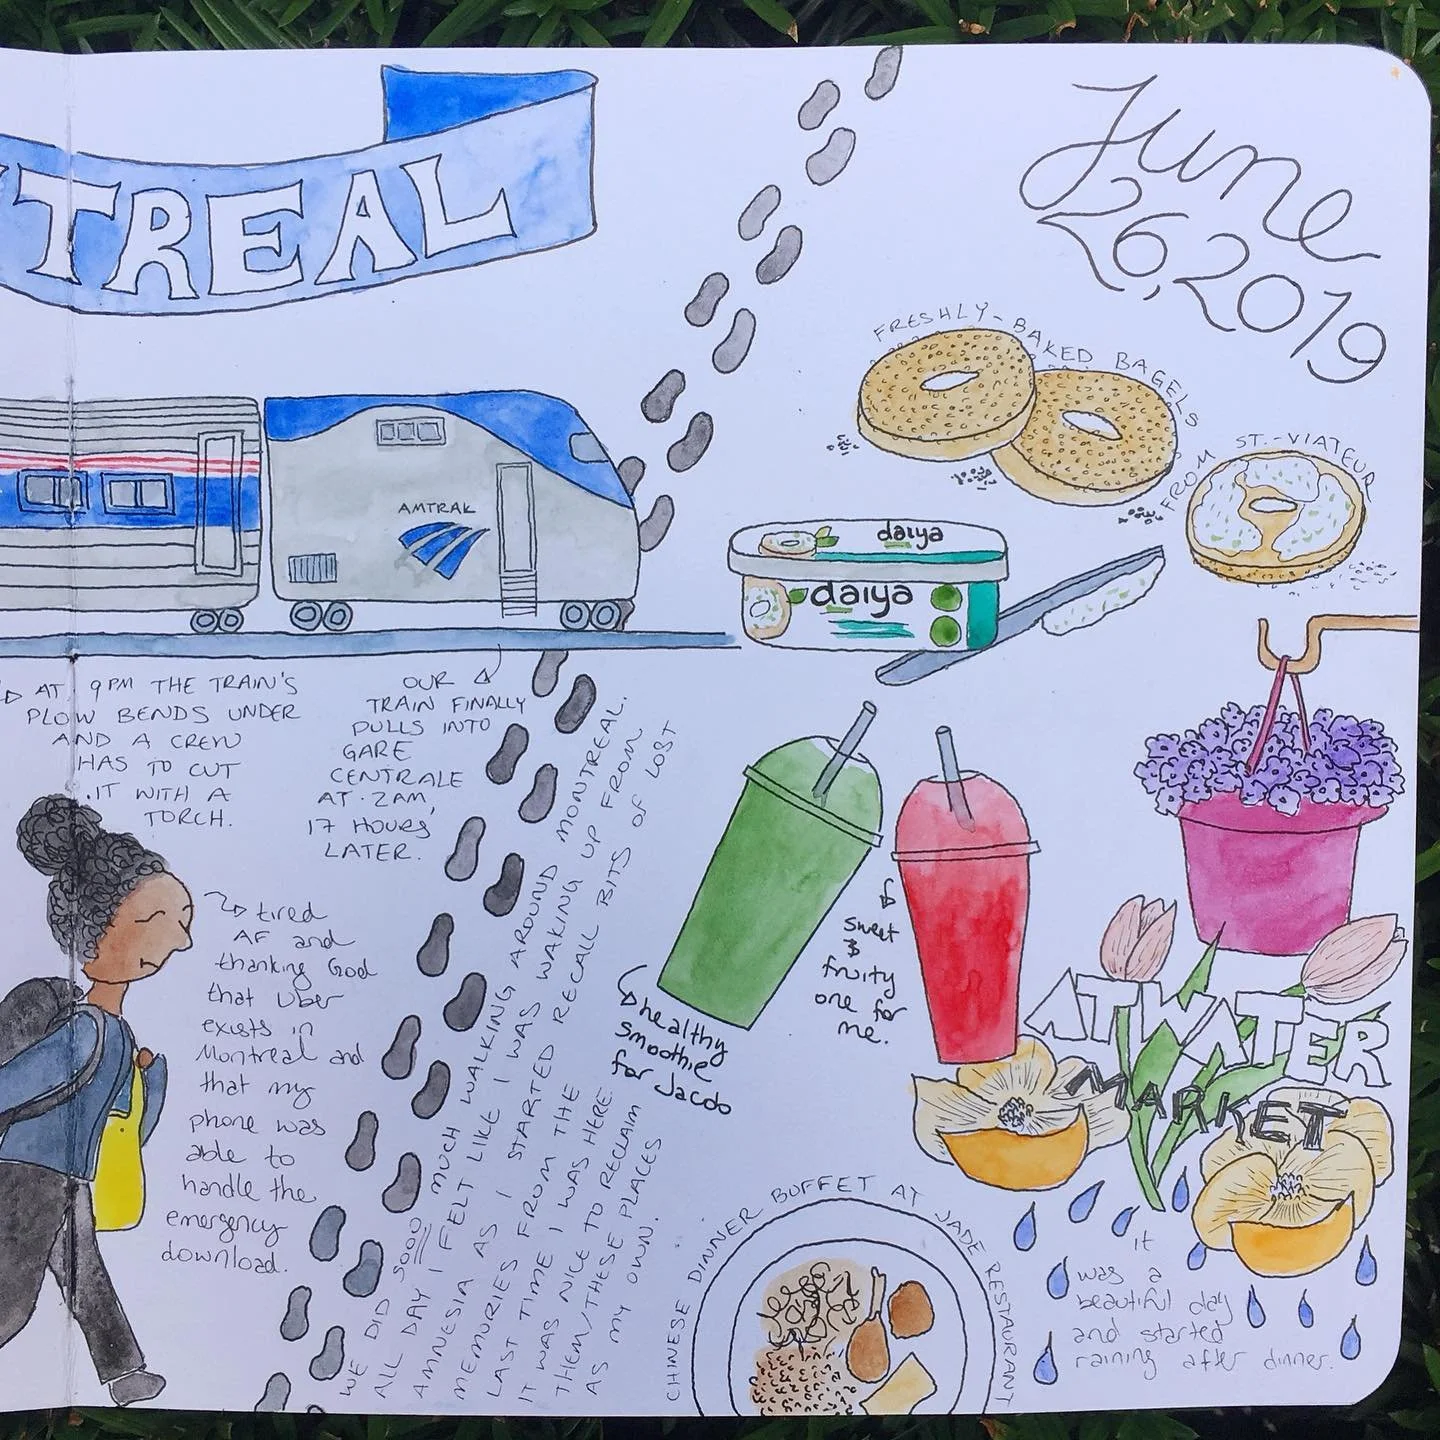 TREAL
June
26, 2019
FRESHLY-BAKED BAGELS
FROM
ST.-VIATEUR
AMTRAK
daiya
daiya
AT 9PM THE TRAIN'S
PLOW BENDS UNDER
AND A CREW
HAS TO CUT
IT WITH A
TORCH.
OUR
TRAIN FINALLY
PULLS INTO
GARE
CENTRALE
AT 2AM,
17 HOURS
LATER.
tired
AF and
thanking God
that Uber
exists in
Montreal and
that my
phone was
able to
handle the
emergency
download.
WE DID SOOO MUCH WALKING AROUND MONTREAL.
ALL DAY I FELT LIKE I WAS WAKING UP FROM
AMNESIA AS I STARTED RECALL BITS OF LOST
MEMORIES FROM THE
LAST TIME I WAS HERE.
IT WAS NICE TO RECLAIM
THEM/THESE PLACES
AS MY OWN.
healthy
smoothie
for Jacob
sweet
&
fruity
one for
me.
ATWATER
MARKET
CHINESE DINNER BUFFET AT JADE RESTAURANT
it
was a
beautiful day
and started
raining after dinner.